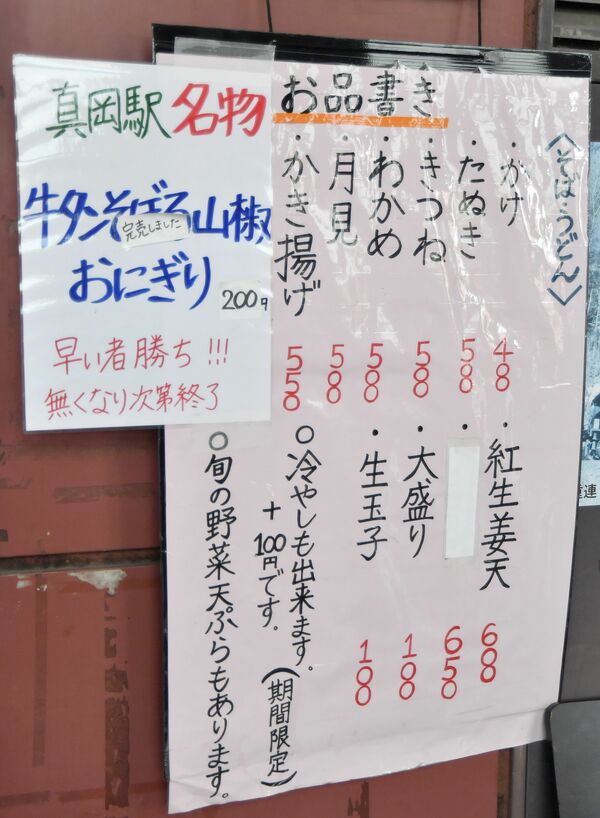 真岡駅 名物
牛タンそぼろ山椒
完売しました
おにぎり 200円
早い者勝ち!!!
無くなり次第終了
お品書き
〈そば・うどん〉
・かけ 400
・たぬき 500
・きつね 500
・わかめ 500
・月見 500
・かき揚げ 550
・紅生姜天 600
・ 650
・大盛り 100
・生玉子 100
○冷やしも出来ます。
+100円です。(期間限定)
○旬の野菜天ぷらもあります。